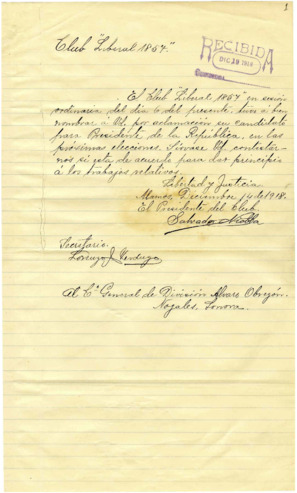 1
Club "Liberal 1857."
RECIBIDA
DIC 19 1918
El Club "Liberal 1857" en sesión
ordinaria del día 6 del presente, tuvo á bien
nombrar á Ud. por aclamación su candidato
para Presidente de la República, en las
próximas elecciones. Sírvase Ud. contestar-
nos si está de acuerdo para dar principio
á los trabajos relativos.
Libertad y Justicia.
Diciembre 14 de 1918.
El Presidente del Club.
Salvador
Secretario.
Lorenzo J. Verdugo
Al C. General de División Alvaro Obregón.
Nogales, Sonora.